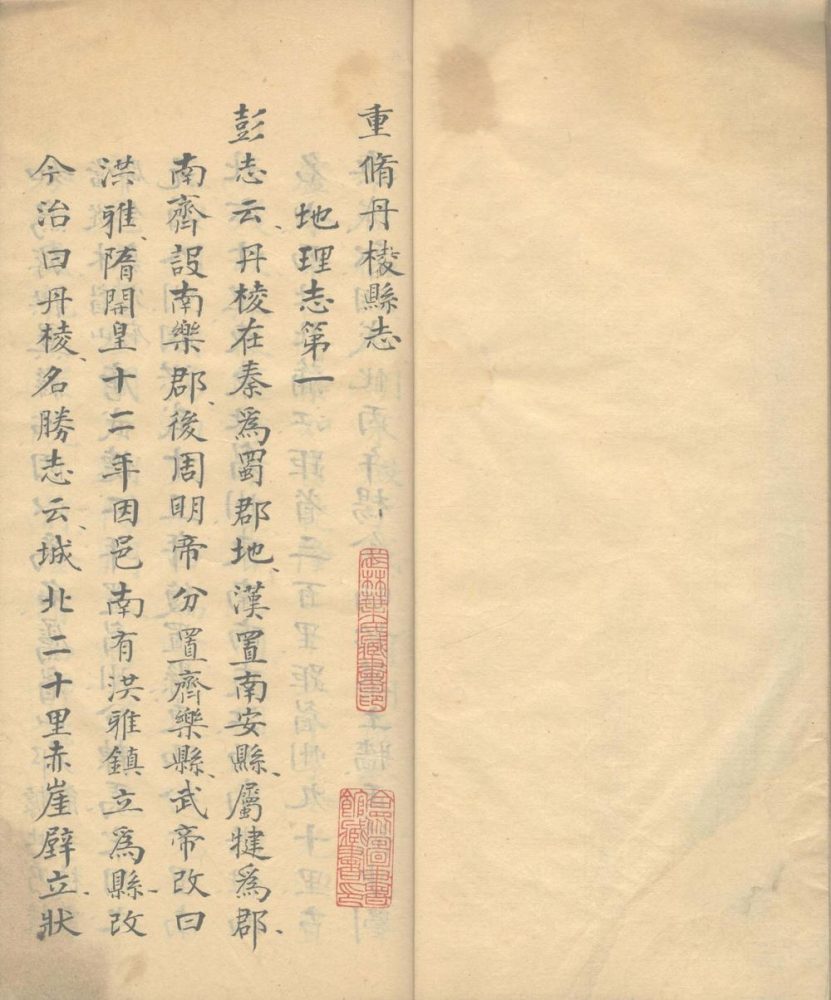 重脩丹棱縣志
地理志第一
彭志云、丹棱在秦爲蜀郡地、漢置南安縣、屬犍爲郡、
南齊設南樂郡、後周明帝分置齊樂縣、武帝改曰
洪雅、隋開皇十二年因邑南有洪雅鎮立爲縣、改
今治曰丹棱、名勝志云、城北二十里赤崖壁立、狀